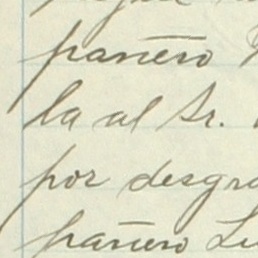 pañero
la al Sr.
por desgra
pañero Lu